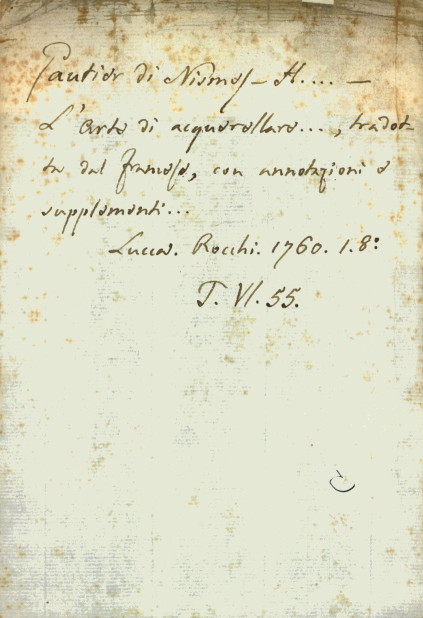 Gautier di Nismes - H.... -
L'Arte di acquerellare..., tradot-
ta dal francese, con annotazioni e
supplementi...
Lucca. Rocchi. 1760. 1. 8:
T. VI. 55.